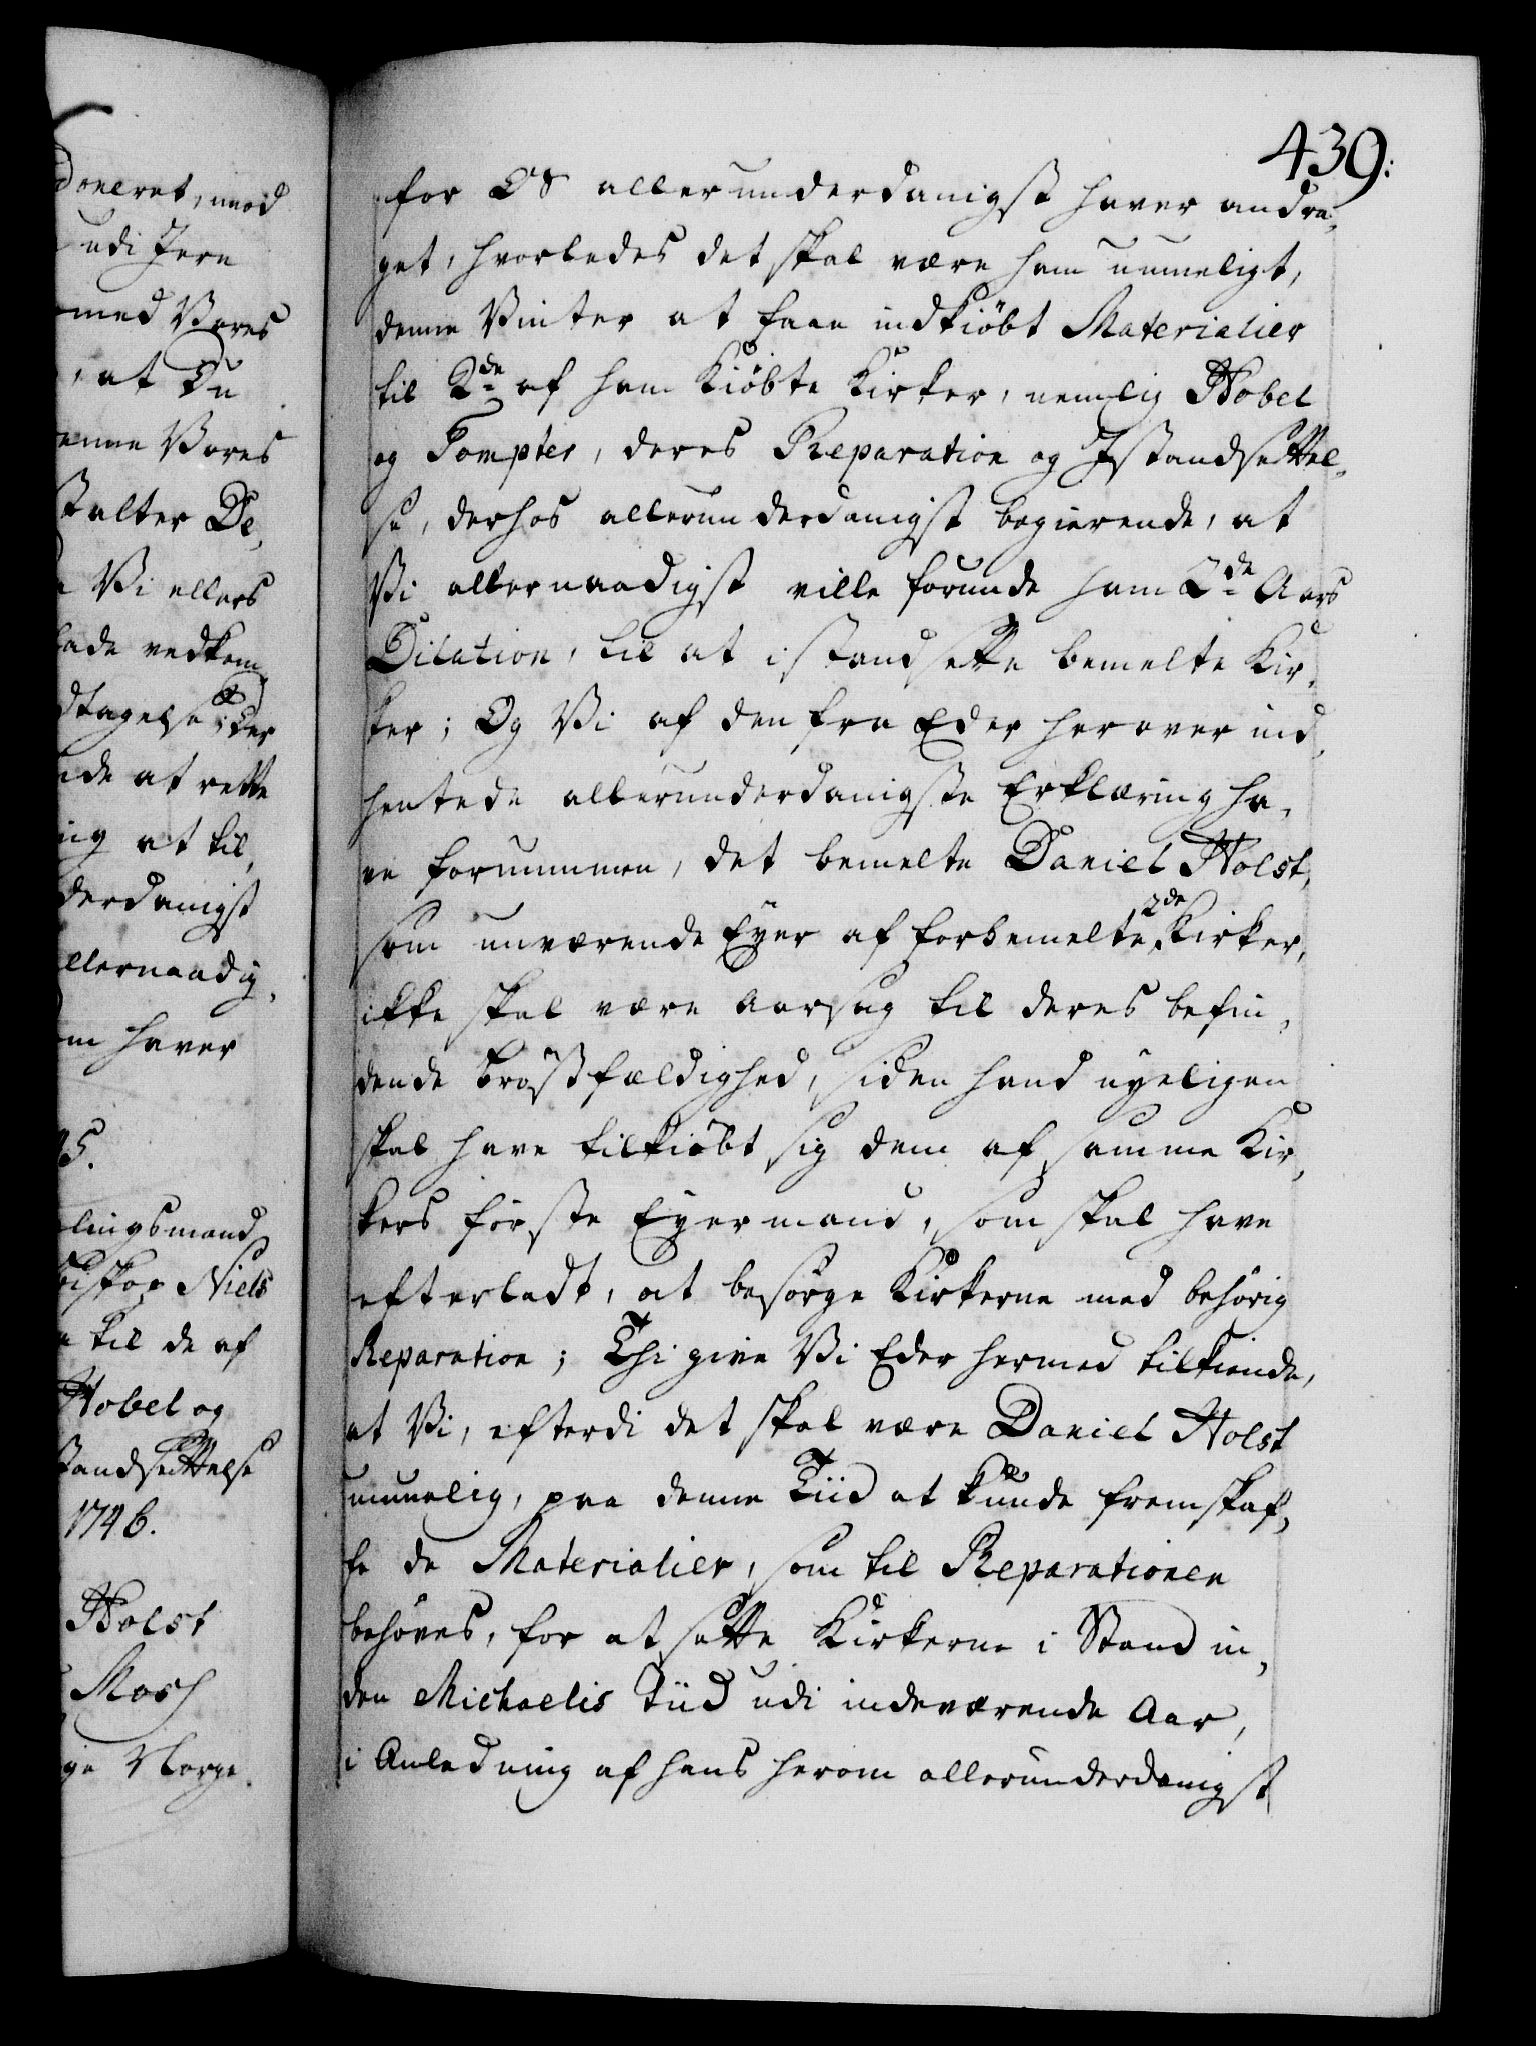 439.
for OS allerunderdanigst haver andra-
get, hvorledes det skal være ham umueligt,
denne Vinter at faae indkiøbt Materialier
til 2de af ham Kiøbte Kirker, nemlig Hobel
og Tompter, deres Reparation og Istandsættel-
se, derhos allerunderdanigst begierende, at
Vi allernaadigst ville forunde ham 2de Aars
Dilation, til at istandsætte bemelte Kir-
ker; Og Vi af den fra Eder herover ind-
hentede allerunderdanigste Erklæring ha-
ve fornummen, det bemelte Daniel Holst,
som nuværende Eyer af forbemelte 2de Kirker,
ikke skal være Aarsag til deres befin-
dende Brøstfældighed, siden hand nyeligen
skal have tilkiøbt sig dem af samme Kir-
kers første Eyermand, som skal have
efterladt, at besørge Kirkerne med behørig
Reparation; Thi give Vi Eder hermed tilkiende,
at Vi, efterdi det skal være Daniel Holst
umuelig, paa denne Tiid at kunde fremskaf-
fe de Materialier, som til Reparationen
behøves, for at sætte Kirkerne i Stand in-
den Michaelis Tiid udi indeværende Aar,
i Anledning af hans herom allerunderdanigst
doneret, mod
udi Jern
med Vores
, at Du
enne Vores
stalter De-
Vi ellers
lade vedkom-
dtagelse
de at rette
ng at til-
derdanigst
llernaadig-
m haver
lingsmand
Biskop Niels
til de af
Hobel og
standsættelse
1746.
Holst
Mosf
ge Norge.